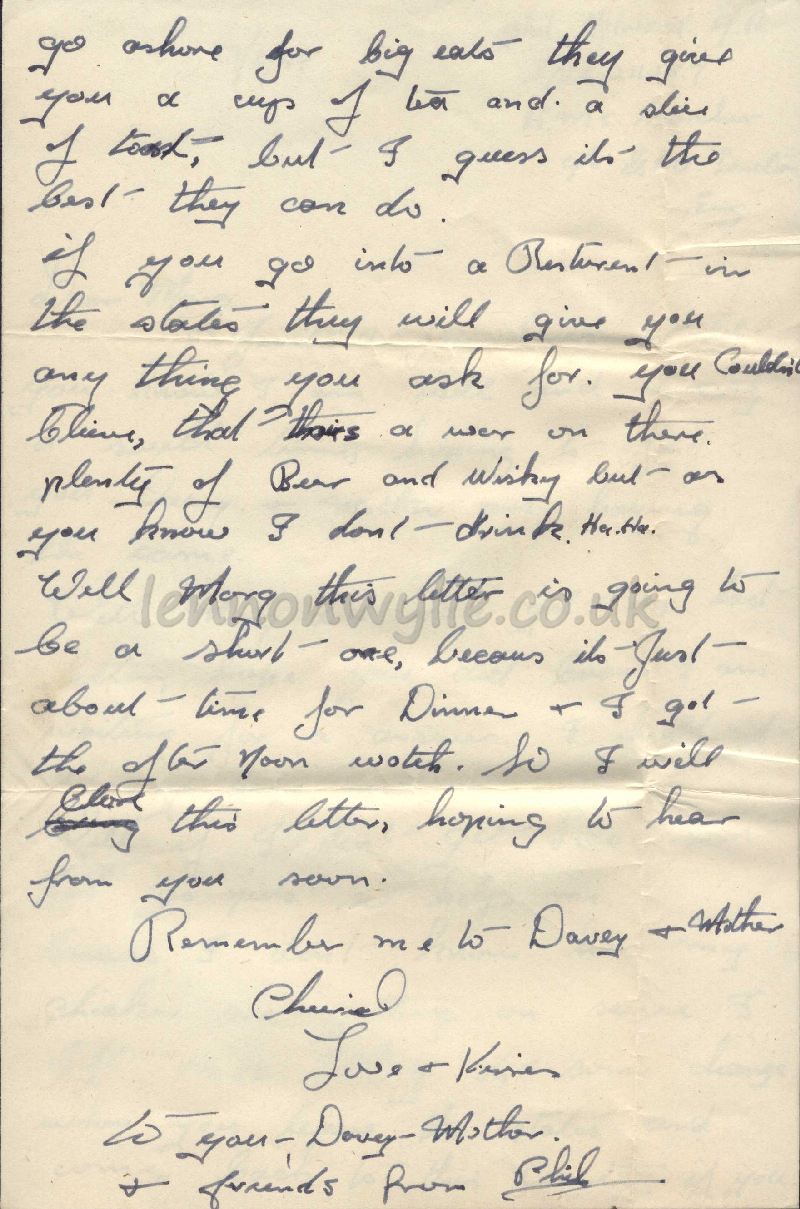 go ashore for big eats they give
you a cups of tea and a slice
of toast, but I guess its the
best they can do.
if you go into a Resturent in
the states they will give you
any thing you ask for. you Couldn't
Blieve, that theirs a war on there.
plenty of Beer and Wisky but as
you know I dont drink. Ha. Ha.
Well Marg this letter is going to
lennonwylie.co.uk
be a short one, becaus its Just
about time for Dinner + I got
the after Noon watch. So I will
Close this letter, hoping to hear
from you soon.
Remember me to Davey + Mother
Cheerio
Love + Kisses
to you - Davey - Mother.
+ friends from Phil